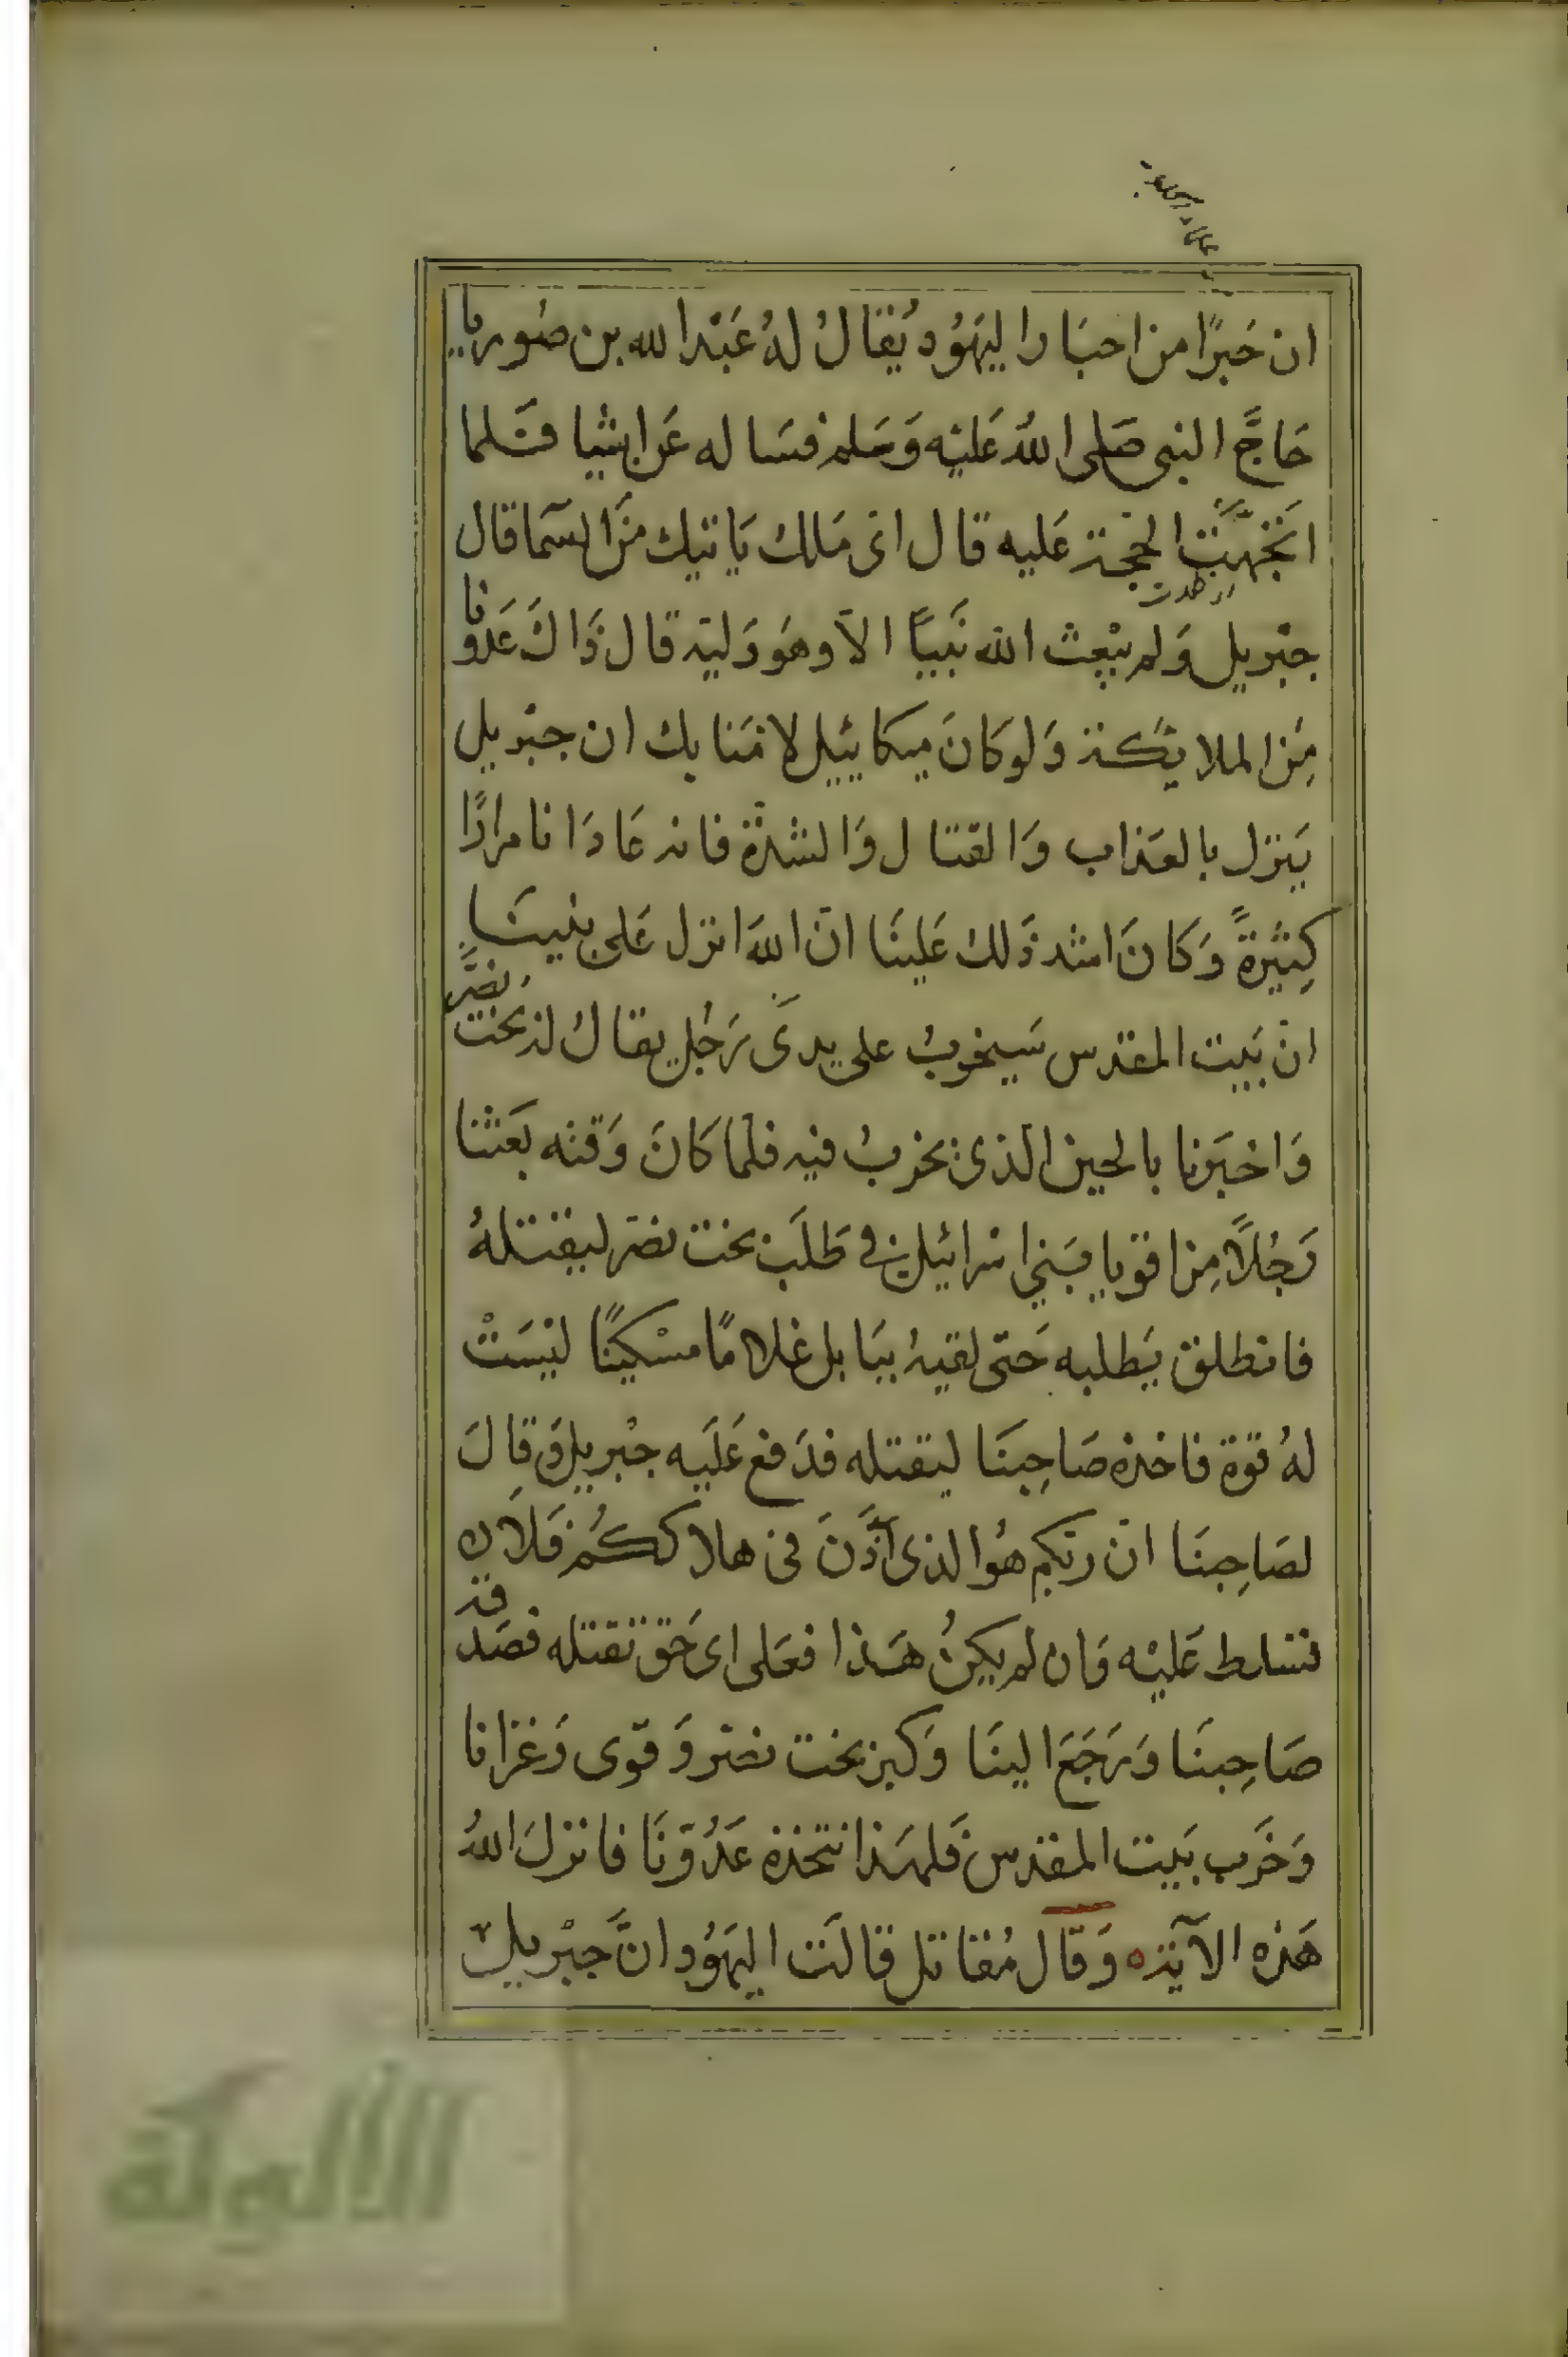 ان حَبرًا من احبَار اليهَوُد يُقالُ لهُ عَبْد الله بن صُوريا
حَاجَّ النبى صَلى اللهُ عَليْه وَسَلم فسَاله عَن اشيا فَلما
اتجَهَت الحجة عَليه قال اى مَلك يَاتيك منَ السَمَا قال
جبْريل وَلم يبْعث الله نَبيًا الا وهَو وَليّه قال ذَاكَ عَدونا
مِنَ الملايكة وَلو كانَ ميكاييل لامَنا بك ان جبْريل
يَنزل بالعَذاب وَالقتال وَالشدّة فانه عَادَانا مرارًا
كِثيرةً وَكانَ اشد ذَلك عَلينَا انّ اللهَ انزل عَلى نبينَا
انّ بَيت المقدس سَيخربُ على يدىَ رَجُل يقالُ له بخت نصَّر
وَاخبَرنا بالحين الذى يخربُ فيه فلما كانَ وَقته بَعَثنا
رَجُلاً مِن اقويا بَنى اسْرائيل فى طَلَب بخت نصَر ليقتلهُ
فانطلق يَطلبه حَتى لقيهُ ببَابل غلامًا مسْكينًا ليْسَتْ
لهُ قوّة فاخذه صَاحِبنَا ليقتله فدَفع عَلَيه جبْريل وَقالَ
لصَاحِبنَا انّ ربّكم هُو الذى اَذَّنَ فى هلاككُم فَلاَن
تسَلط عَليْه وَان لم يكنُ هَذا فعَلى اى حَق تقتله فصَدقه
صَاحِبنَا وَرَجَعَ الينَا وَكبر بخت نصَر وَقوى وَغزانا
وَخَرب بَيت المقدس فَلهَذا نتخذه عَدُوّنَا فانزلَ اللهُ
هَذه الآية ه وَقال مُقاتل قالَت اليهَوُد انَّ جبْريل